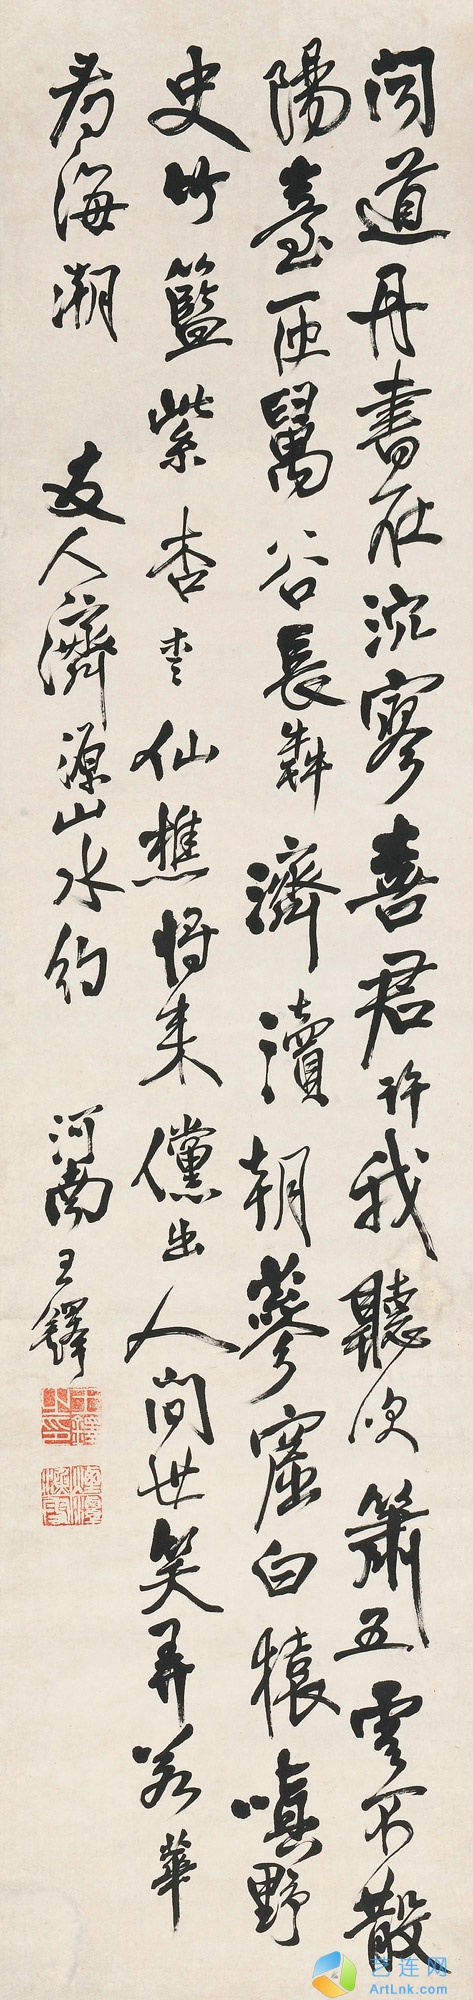 聞道丹書在泬寥喜君許我聽吹簫五雲不散
陽臺匝萬谷長犇濟瀆朝蔘窟白猿嗔野
史竹籃紫杏仙樵將來儻出人間世笑弄若華
看海潮 友人濟源山水約 河南王鐸
王鐸之印
艺连网
ArtLnk.com